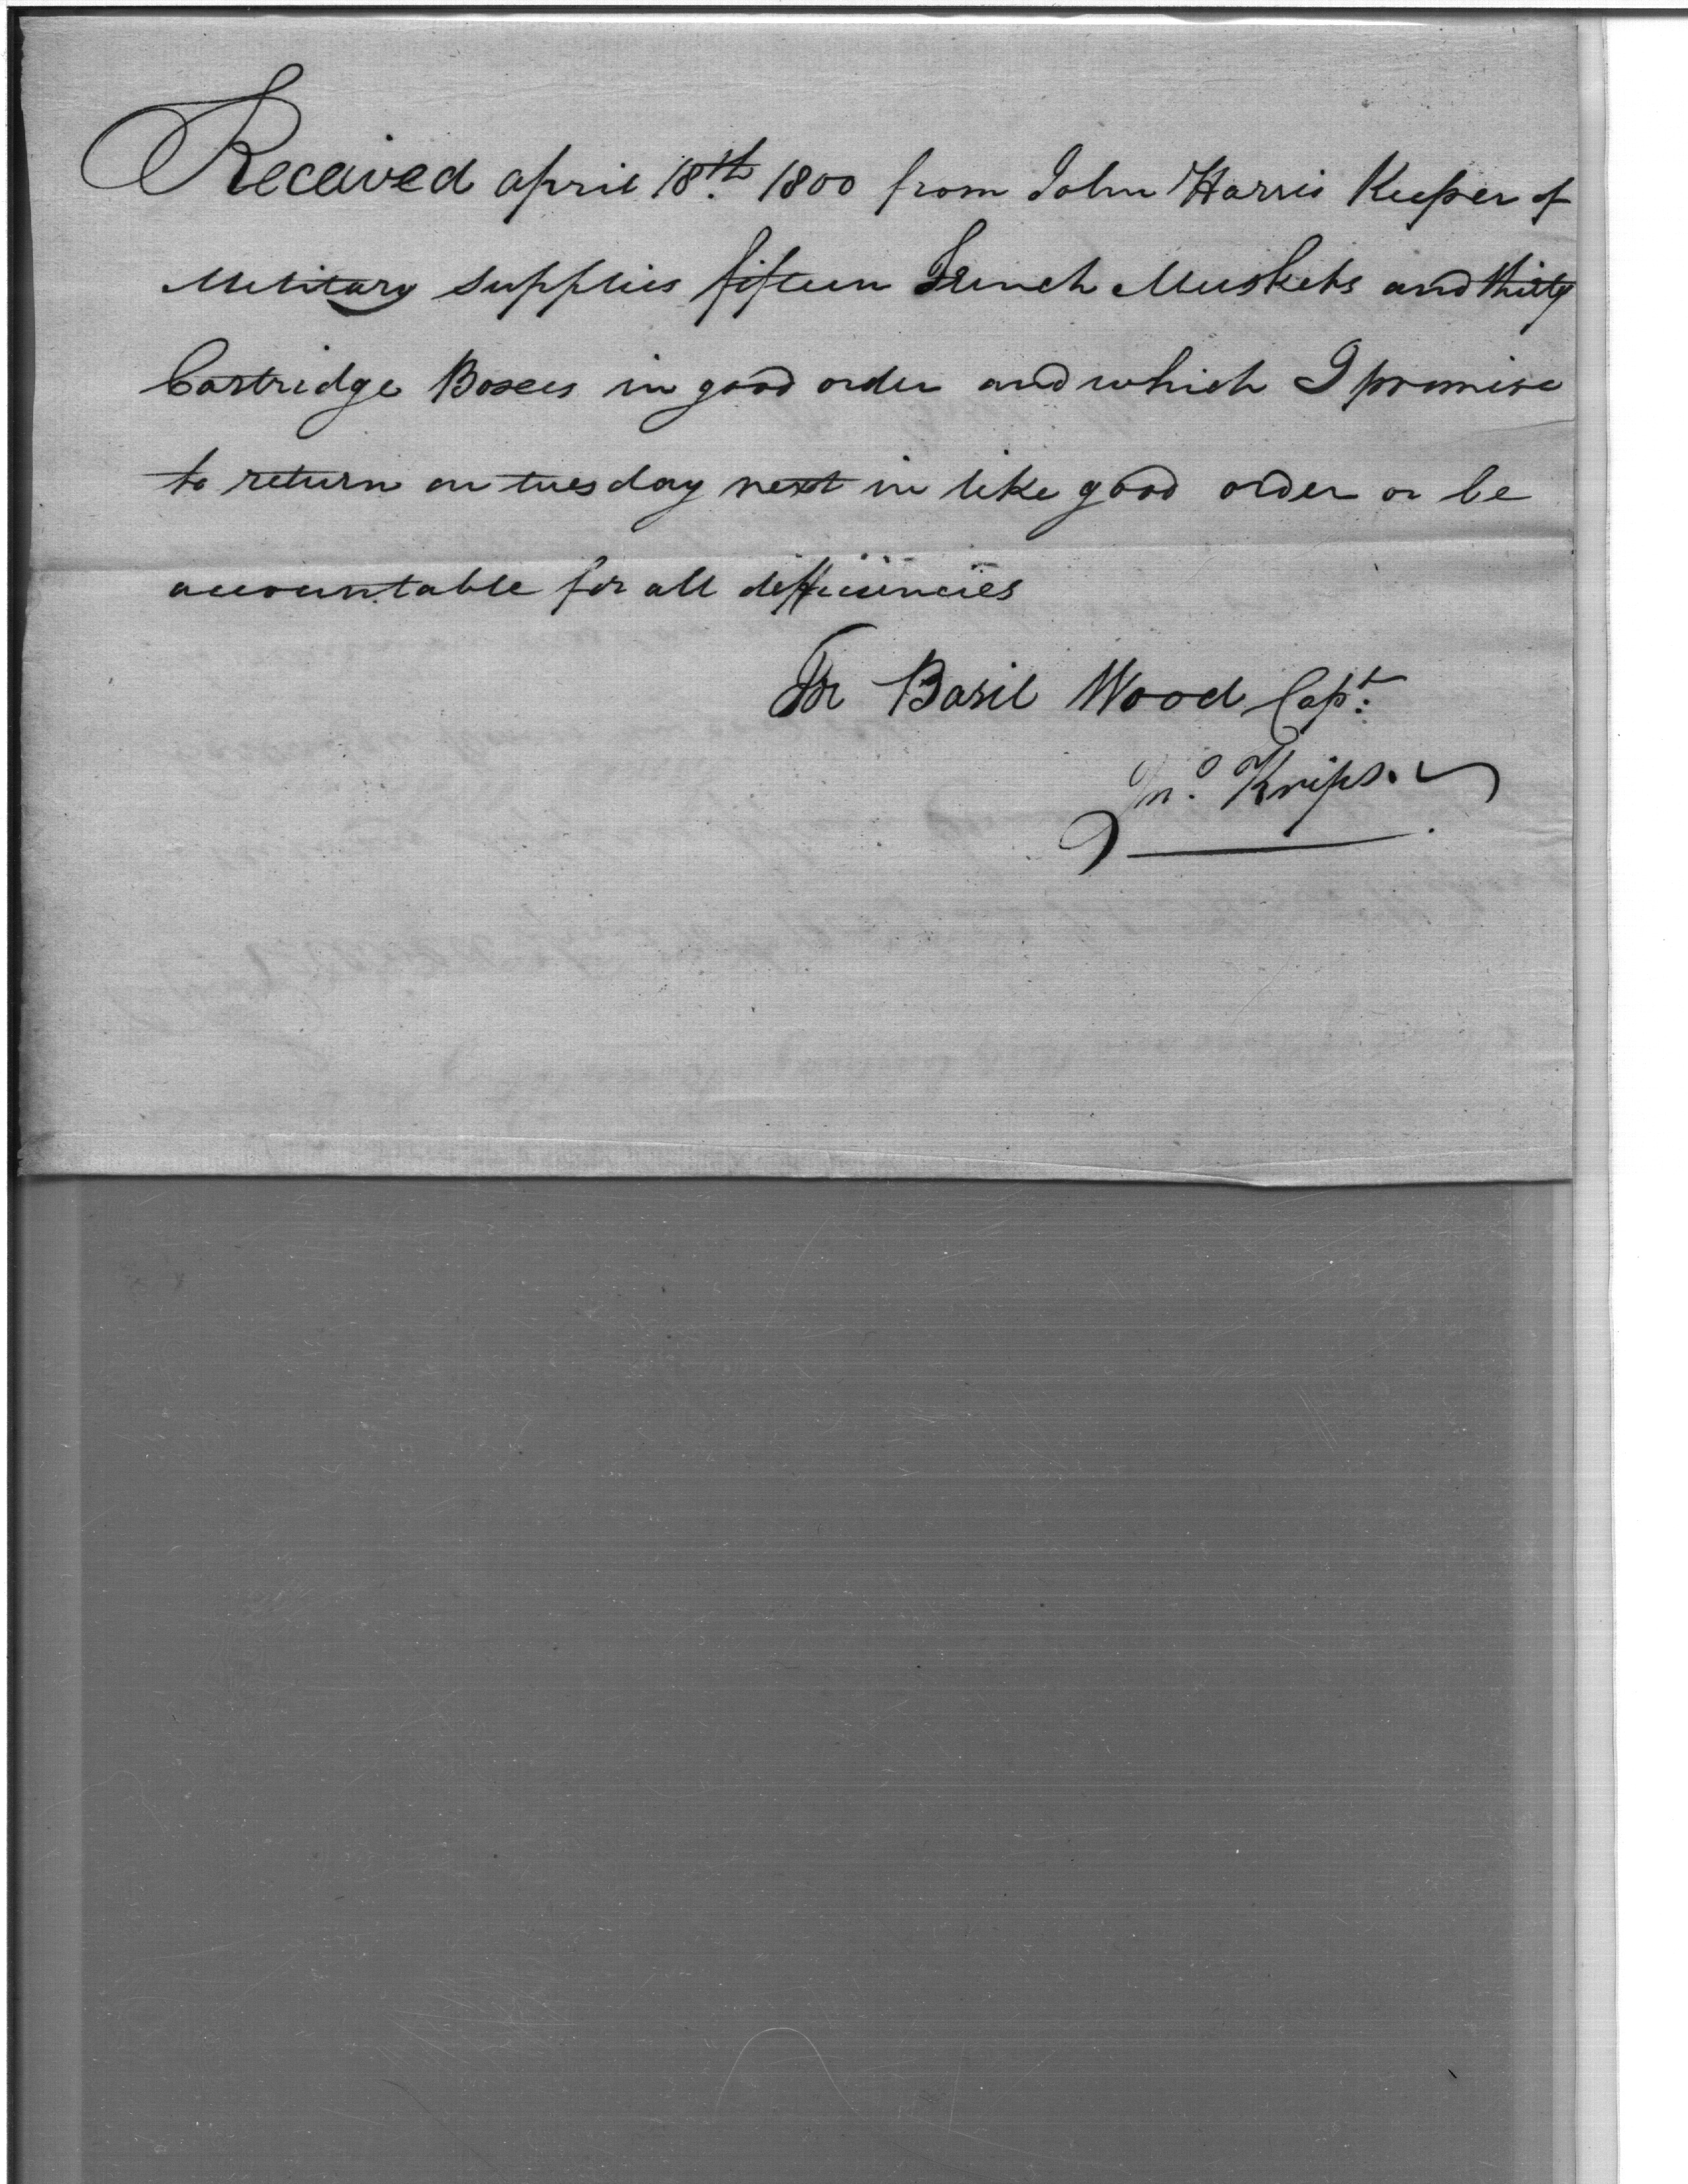 Received april 18th. 1800 from John Harris Keeper of
Military supplies fifteen French Muskets and thirty
Cartridge Boxes in good order and which I promise
to return on tuesday next in like good order or be
accountable for all defficiencies
For Basil Wood Capt:
Jno. Krips.